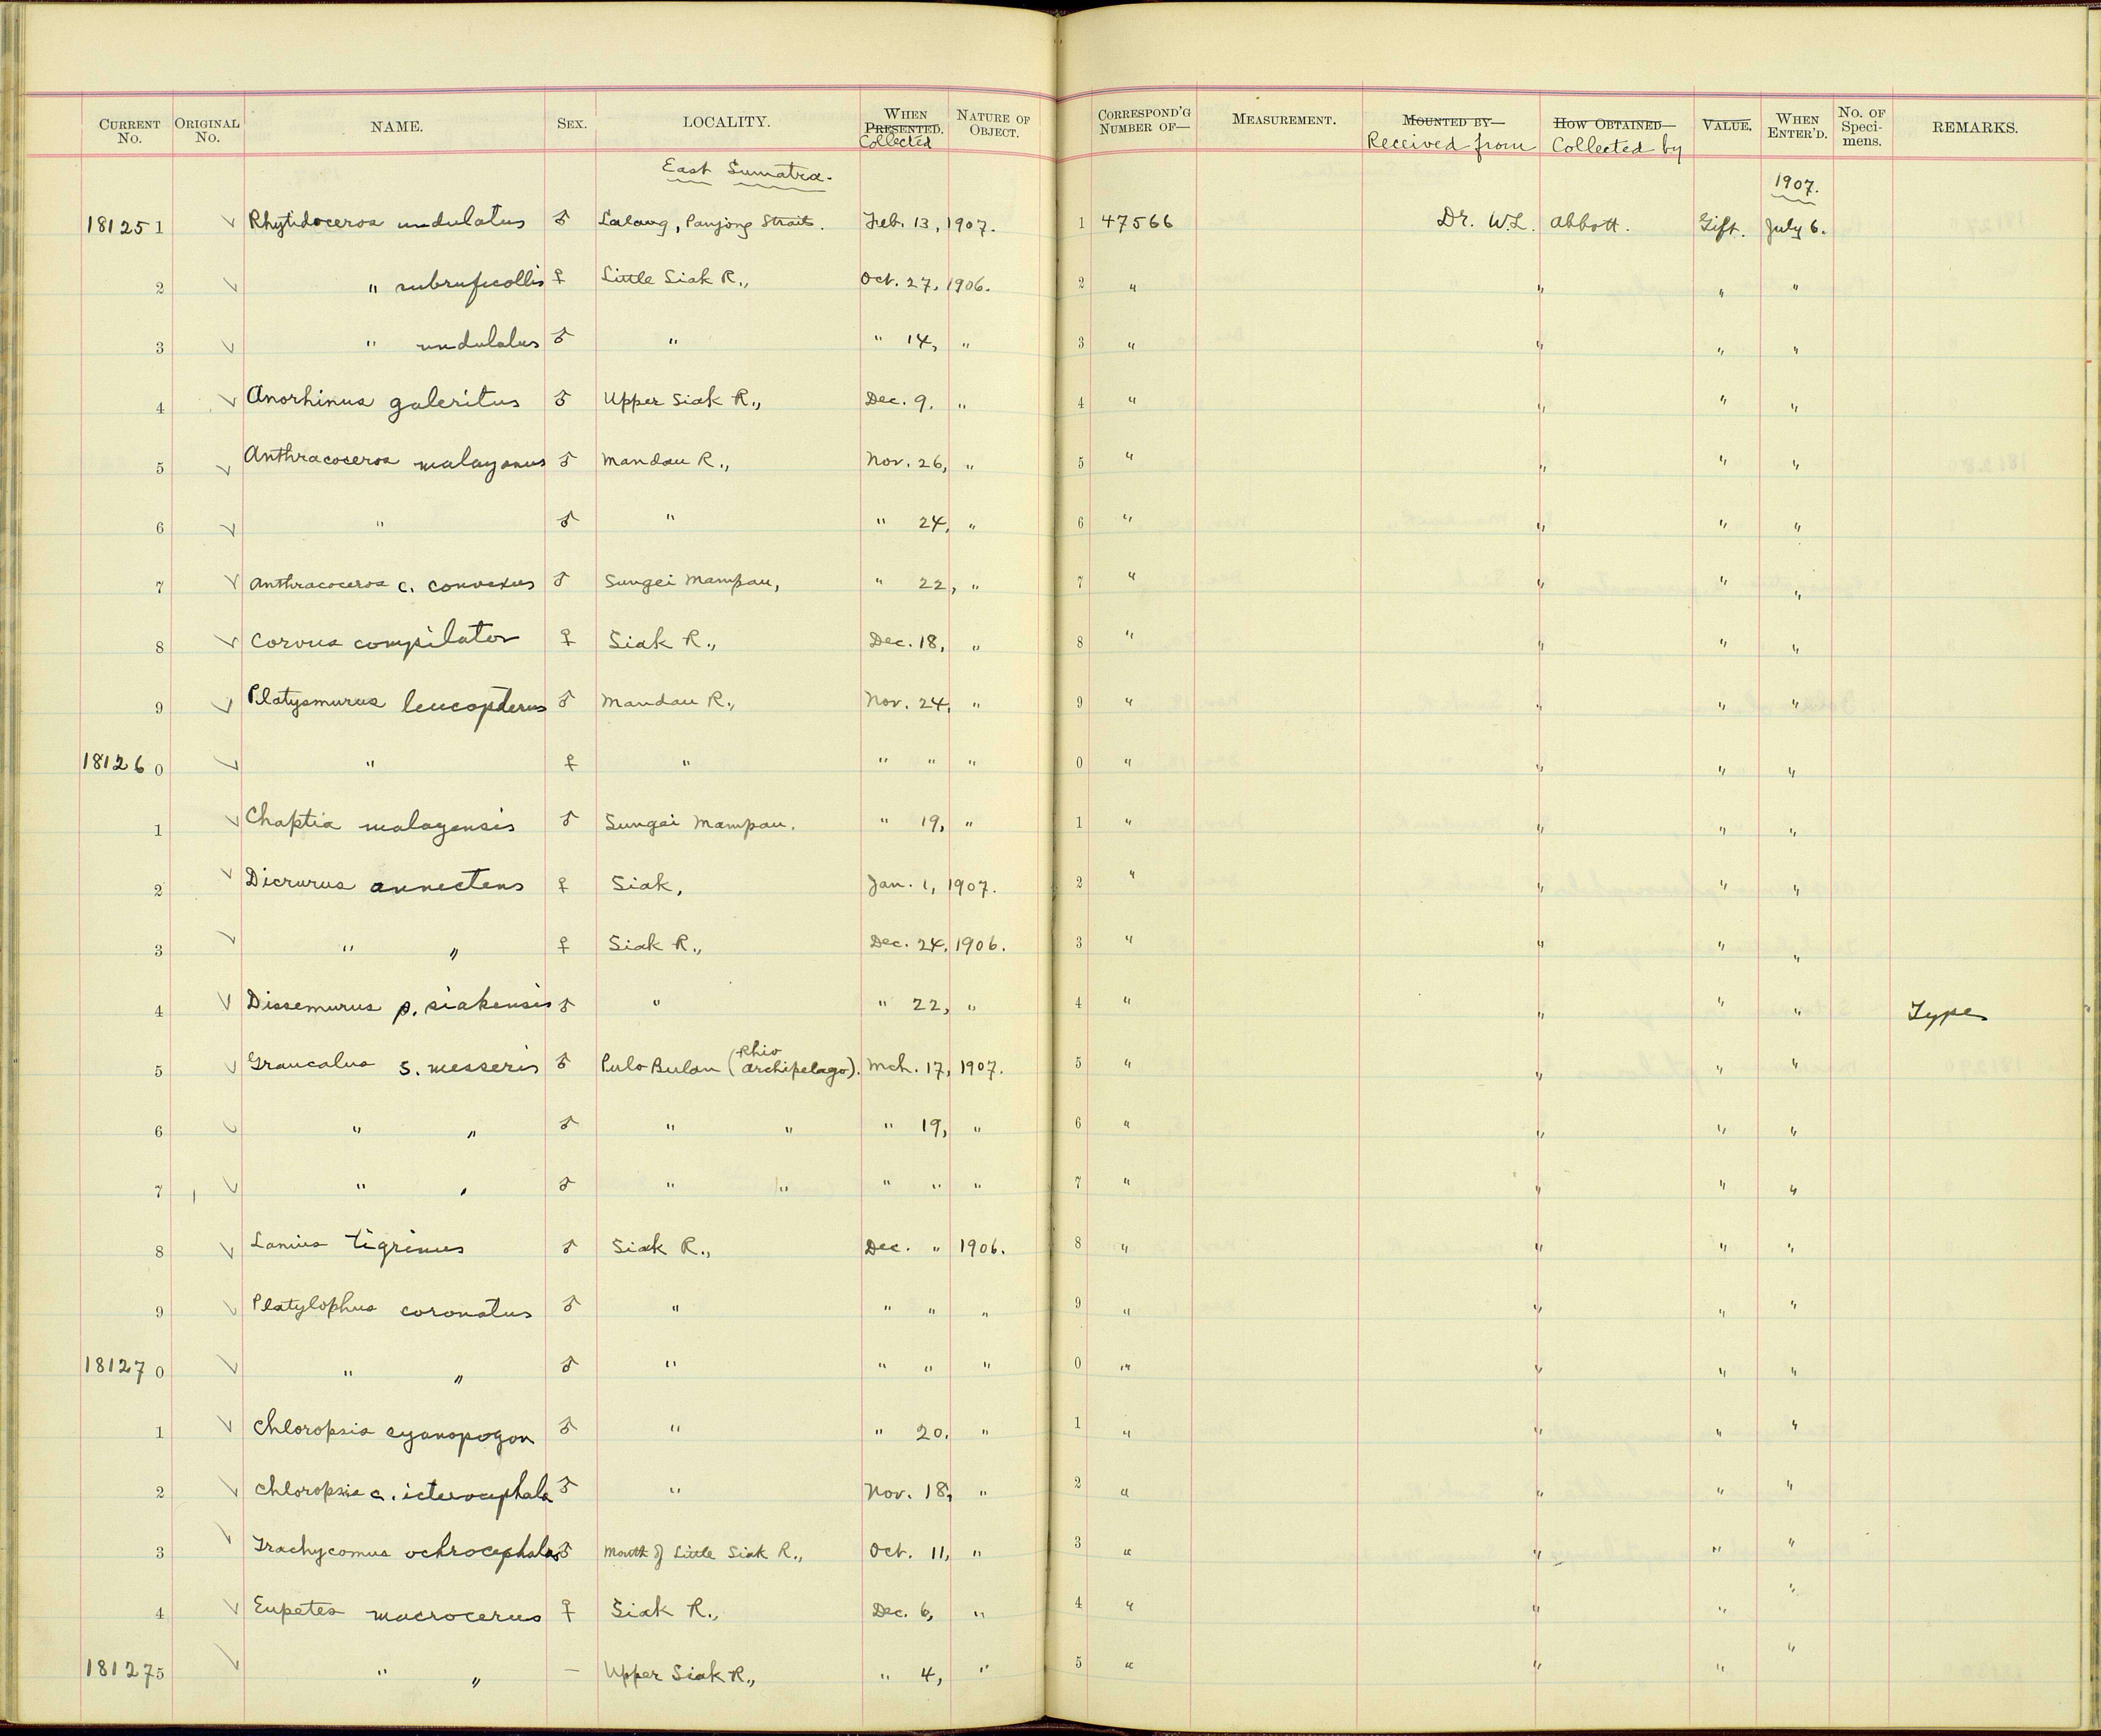 CURRENT No. ORIGINAL No. NAME. SEX. LOCALITY. WHEN PRESENTED. Collected NATURE OF OBJECT. CORRESPOND'G NUMBER OF— MEASUREMENT. MOUNTED BY— Received from HOW OBTAINED— Collected by VALUE. WHEN ENTER'D. No. OF Speci-mens. REMARKS.
East Sumatra. 1907.
181251 ✓ Rhytidoceros undulatus ♂ Lalang, Panjong Strait. Feb. 13, 1907. 1 47566 Dr. W.L. Abbott. Gift. July 6.
2 ✓ " subruficollis ♀ Little Siak R., Oct. 27, 1906. 2 " " " "
3 ✓ " undulatus ♂ " " 14, " 3 " " " "
4 ✓ Anorhinus galeritus ♂ Upper Siak R., Dec. 9. " 4 " " " "
5 ✓ Anthracoceros malayanus ♂ Mandau R., Nov. 26, " 5 " " " "
6 ✓ " ♂ " " 24, " 6 " " " "
7 ✓ Anthracoceros c. convexus ♂ Sungei Mampau, " 22, " 7 " " " "
8 ✓ Corvus compilator ♀ Siak R., Dec. 18, " 8 " " " "
9 ✓ Platysmurus leucopterus ♂ Mandau R., Nov. 24, " 9 " " " "
181260 ✓ " ♀ " " " " 0 " " " "
1 ✓ Chaptia malayensis ♂ Sungei Mampau. " 19, " 1 " " " "
2 ✓ Dicrurus annectens ♀ Siak, Jan. 1, 1907. 2 " " " "
3 ✓ " " ♀ Siak R., Dec. 24, 1906. 3 " " " "
4 ✓ Dissemurus p. siakensis ♂ " " 22, " 4 " " " " Type
5 ✓ Graucalus s. messeris ♂ Pulo Bulan (Rhio Archipelago). Mch. 17, 1907. 5 " " " "
6 ✓ " " ♂ " " " 19, " 6 " " " "
7 ✓ " " ♂ " " " " " 7 " " " "
8 ✓ Lanius tigrinus ♂ Siak R., Dec. " 1906. 8 " " " "
9 ✓ Platylophus coronatus ♂ " " " " 9 " " " "
181270 ✓ " " ♂ " " " " 0 " " " "
1 ✓ Chloropsis cyanopogon ♂ " " 20. " 1 " " " "
2 ✓ Chloropsis c. icterocephala ♂ " Nov. 18, " 2 " " " "
3 ✓ Trachycomus ochrocephalus ♂ Mouth of Little Siak R., Oct. 11, " 3 " " " "
4 ✓ Eupetes macrocerus ♀ Siak R., Dec. 6, " 4 " " " "
181275 ✓ " " — Upper Siak R., " 4, " 5 " " " "